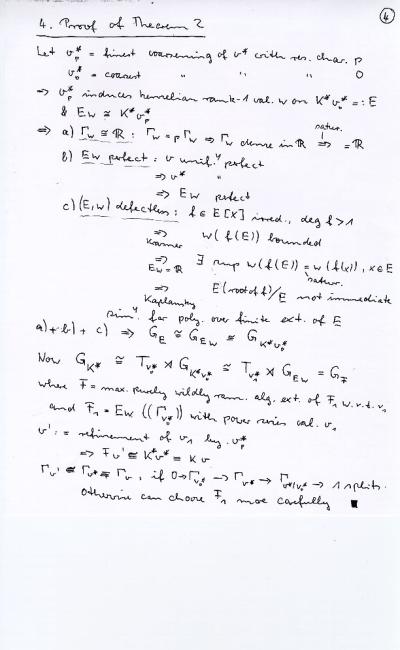 4
4. Proof of Theorem 2
Let v*_p = finest coarsening of v* with res. char. p
v*_0 = coarsest " " " " 0
⇒ v*_p induces henselian rank-1 val. w on K*v*_0 =: E
& Ew ≅ K*v*_p
⇒ a) Γ_w ≅ ℝ : Γ_w = pΓ_w ⇒ Γ_w dense in ℝ ⇒ = ℝ
satur.
b) Ew perfect : v unif.ly perfect
⇒ v* "
⇒ Ew perfect
c) (E,w) defectless : f ∈ E[X] irred., deg f > 1
⇒ w(f(E)) bounded
Krasner
⇒ ∃ sup w(f(E)) = w(f(x)), x ∈ E
Ew = ℝ satur.
⇒ E(root of f)/E not immediate
Kaplansky
sim.ly for poly. over finite ext. of E
a) + b) + c) ⇒ G_E ≅ G_Ew ≅ G_K*v*_0
Now G_K* ≅ T_v*_0 ⋊ G_K*v*_0 ≅ T_v*_0 ⋊ G_Ew = G_F
where F = max. purely wildly ram. alg. ext. of F_1 w.r.t. v_1
and F_1 = Ew((Γ_v*_0)) with power series val. v_1
v' := refinement of v_1 by v*_p
⇒ Fv' ≅ K*v* = Kv
Γ_v' ≡ Γ_v* ≡ Γ_v, if 0 → Γ_v*_0 → Γ_v* → Γ_v*/v*_0 → 1 splits.
Otherwise can choose F_1 more carefully ∎